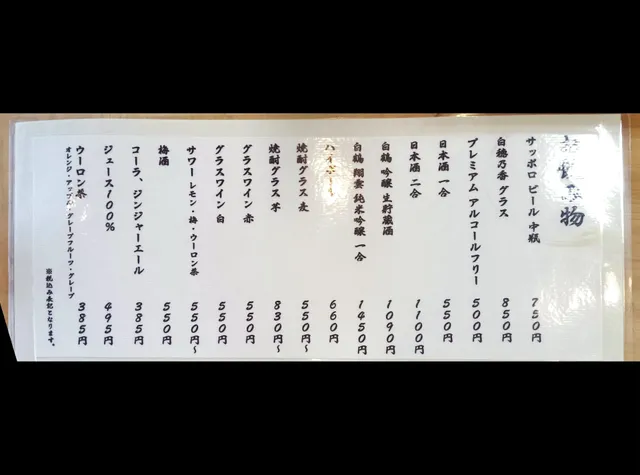 お飲み物
サッポロ ビール 中瓶 750円
白穂乃香 グラス 850円
プレミアム アルコールフリー 500円
日本酒 一合 550円
日本酒 二合 1100円
白鶴 吟醸 生貯蔵酒 1090円
白鶴 翔雲 純米吟醸 一合 1450円
ハイボール 660円
焼酎グラス 麦 550円〜
焼酎グラス 芋 830円〜
グラスワイン 赤 550円
グラスワイン 白 550円
サワー レモン・梅・ウーロン茶 550円〜
梅酒 550円
コーラ、ジンジャーエール 385円
ジュース100% 495円
ウーロン茶 385円
オレンジ・アップル・グレープフルーツ・グレープ
※税込み表記となります。